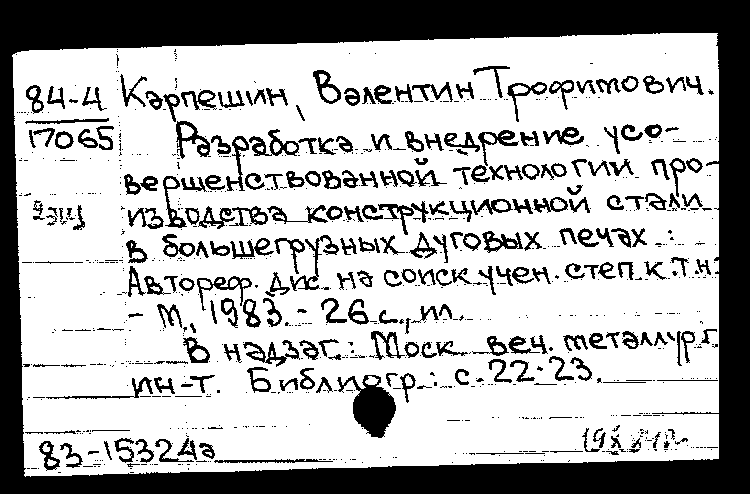 84-4 Карпешин, Валентин Трофимович.
17065 Разработка и внедрение усо-
вершенствованной технологии про-
изводства конструкционной стали
в большегрузных дуговых печах :
Автореф. дис. на соиск учен. степ к.т.н.
- М., 1983. - 26 с., ил.
В надзаг.: Моск веч. металлург.
ин-т. Библиогр.: с. 22-23.
83-15324а